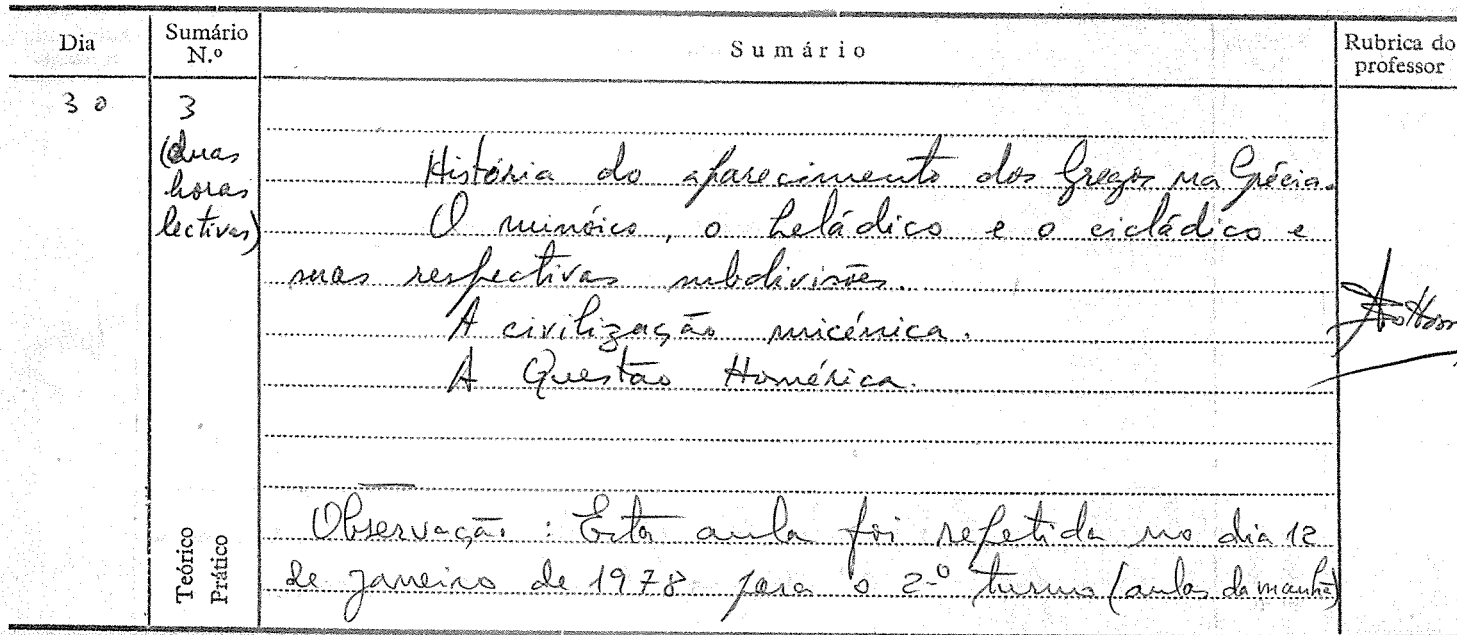 Dia
Sumário
N.º
Sumário
Rubrica do
professor
30
3
(duas
horas
lectivas)
História do aparecimento dos Gregos na Grécia.
O minóico, o heládico e o cicládico e
suas respectivas subdivisões.
A civilização micénica.
A Questão Homérica.
Teórico
Prático
Observação: Esta aula foi repetida no dia 12
de Janeiro de 1978 para o 2.º turno (aulas da manhã)